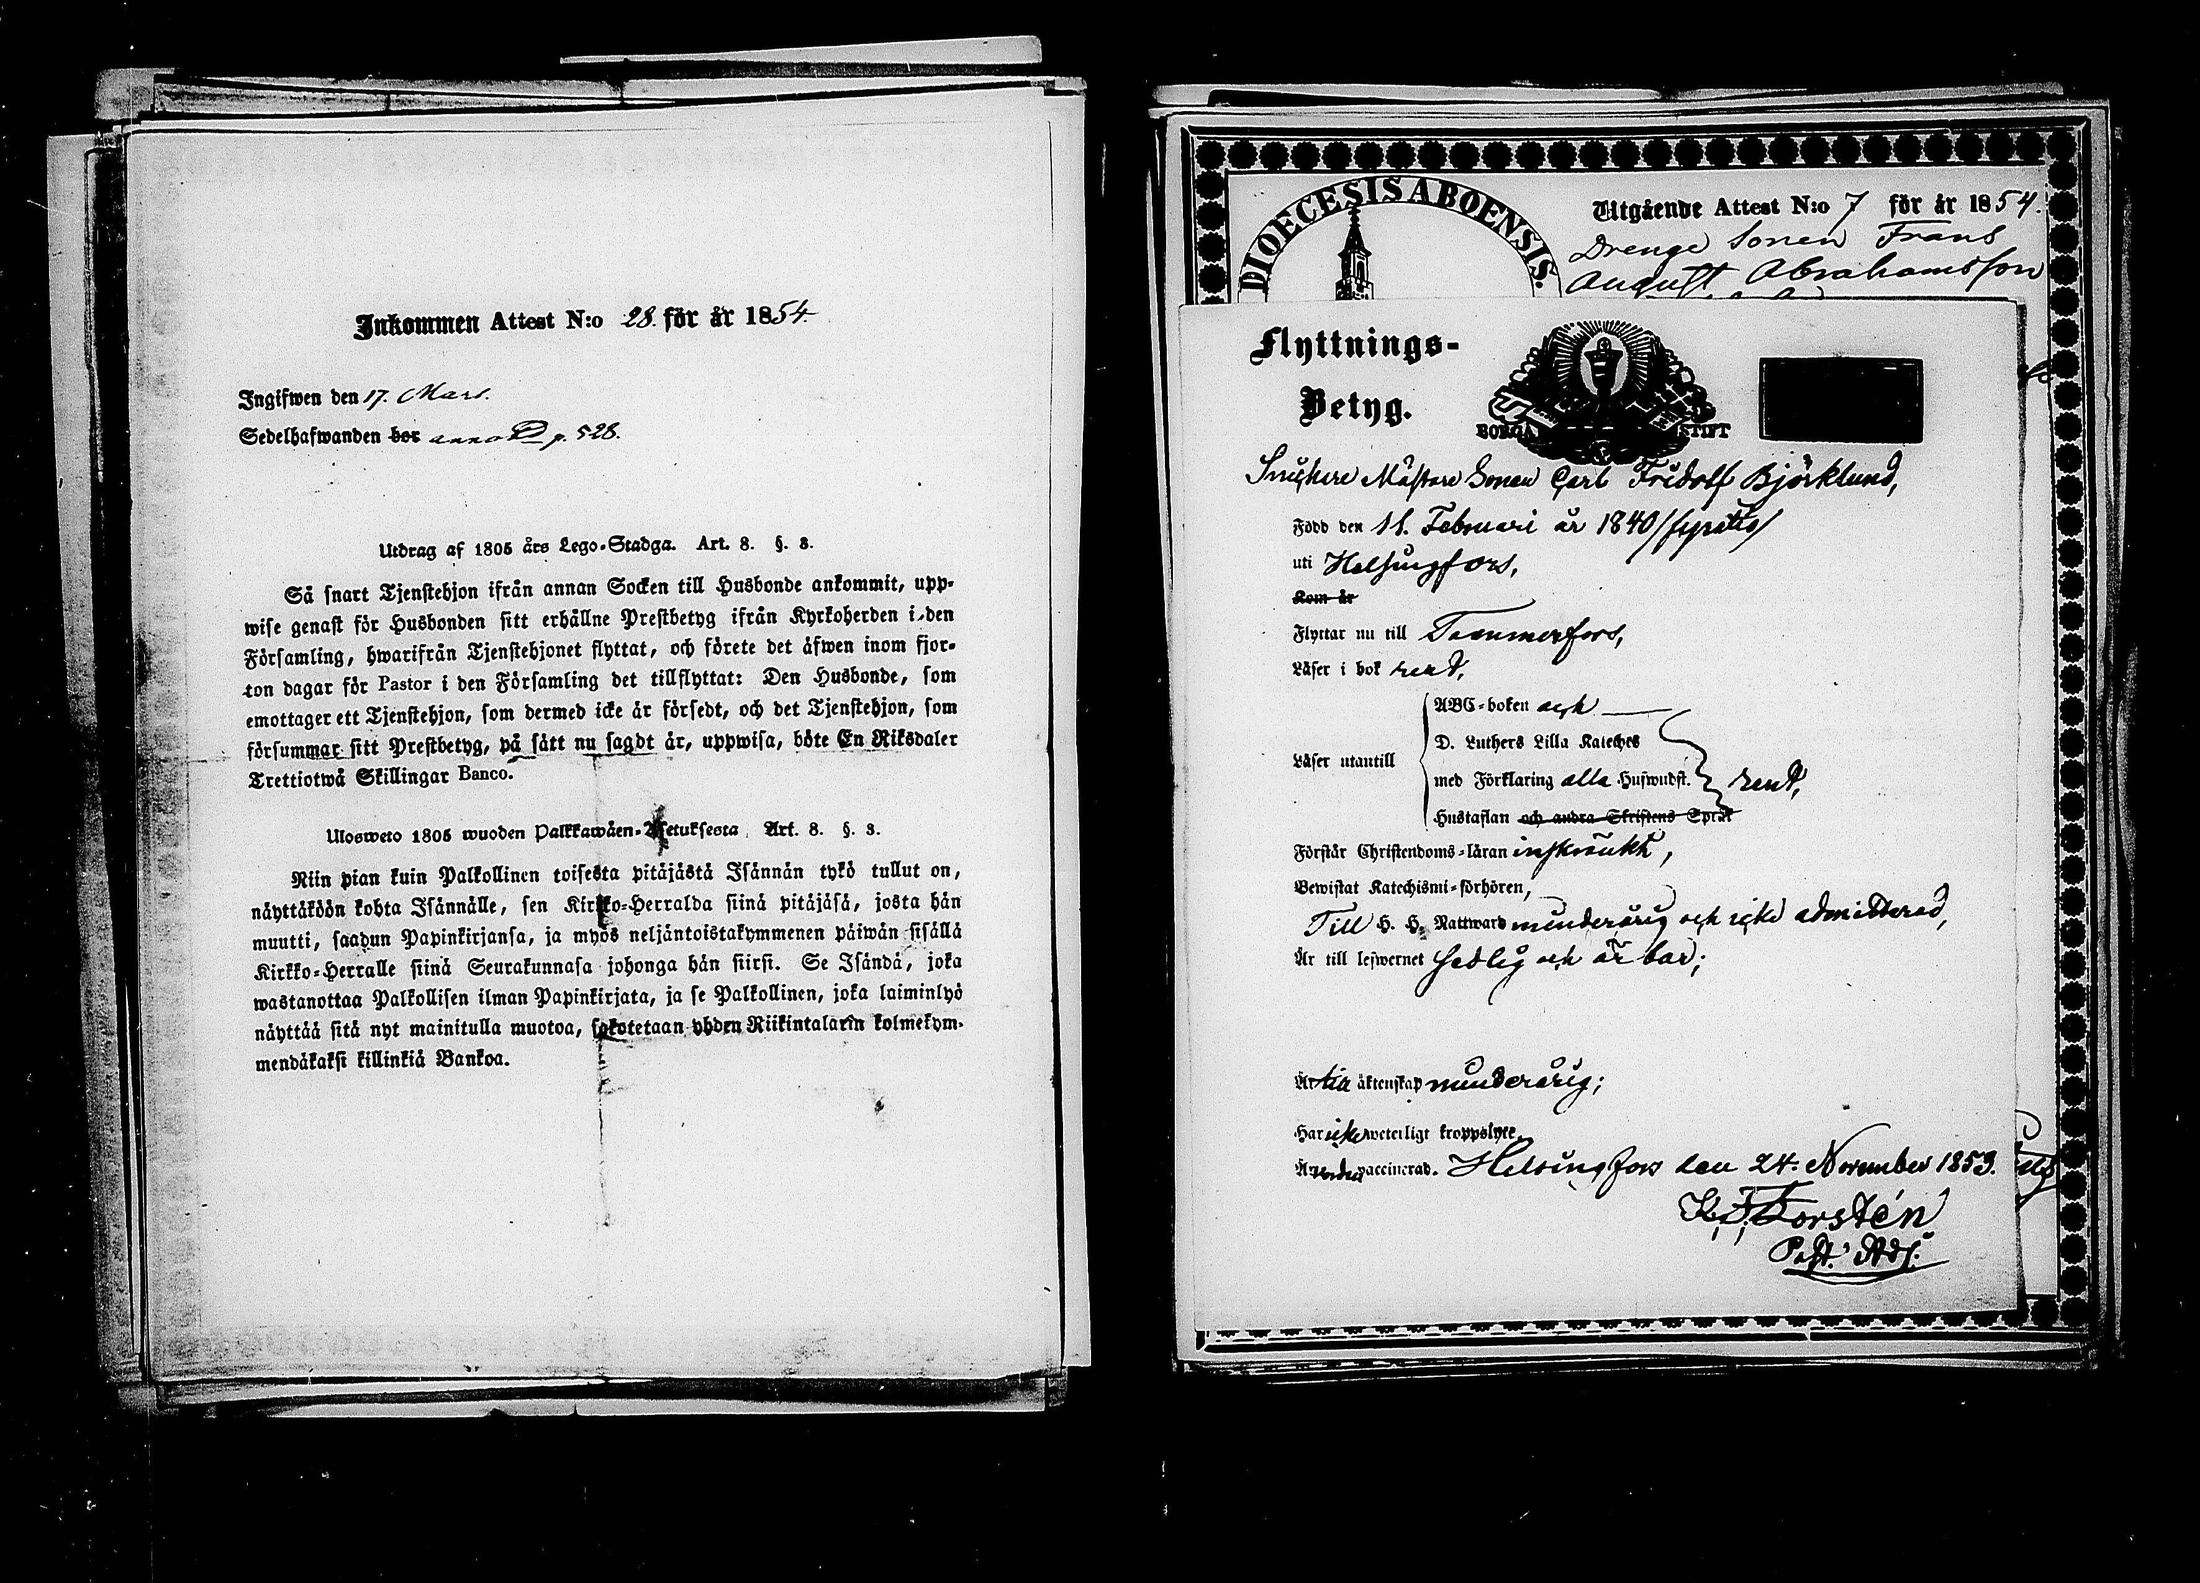 Inkommen Attest N:o 28. för år 1854.
Ingifwen den 17. Mars.
Sedelhafwanden bor anno D p. 528.
Utdrag af 1805 års Lego-Stadga. Art. 8. §. 3.
Så snart Tjenstehjon ifrån annan Socken till Husbonde ankommit, upp-
wise genast för Husbonden sitt erhållne Prestbetyg ifrån Kyrkoherden i den
Församling, hwarifrån Tjenstehjonet flyttat, och förete det äfwen inom fjor-
ton dagar för Pastor i den Församling det tillflyttat: Den Husbonde, som
emottager ett Tjenstehjon, som dermed icke är försedt, och det Tjenstehjon, som
försummar sitt Prestbetyg, på sätt nu sagdt är, uppwisa, böte En Riksdaler
Trettiotwå Skillingar Banco.
Ulosweto 1805 wuoden Palkkawäen-Asetuksesta Art. 8. §. 3.
Niin pian kuin Palkollinen toisesta pitäjästä Isännän tykö tullut on,
näyttäköön kohta Isännälle, sen Kirkko-Herralda siinä pitäjäsä, josta hän
muutti, saadun Papinkirjansa, ja myös neljäntoistakymmenen päiwän sisällä
Kirkko-Herralle siinä Seurakunnasa johonga hän siirsi. Se Isändä, joka
wastanottaa Palkollisen ilman Papinkirjata, ja se Palkollinen, joka laiminlyö
näyttää sitä nyt mainitulla muotoa, sakotetaan yhden Riikintalarin kolmekym-
mendäkaksi killinkiä Bankoa.
DIOECESIS ABOENSIS.
Utgående Attest N:o 7 för år 1854.
Drenge Sonen Frans
August Abrahamsson
Flyttnings-
Betyg.
BORGÅ STIFT
Snickare Mästare Sonen Carl Fridolf Björklund,
Född den 11. Februari år 1840 /fyratio/
uti Helsingfors,
Kom år
Flyttar nu till Tammerfors,
Läser i bok rent,
ABC-boken och
D. Luthers Lilla Kateches
Läser utantill
med Förklaring alla Huswudst. rent,
Hustaflan och andra Skriftens Språk
Förstår Christendoms-läran inskränkt,
Bewistat Katechismi-förhören,
Till H. H. Nattward minderårig och icke admitterad,
Är till lefwernet sedlig och ärbar;
Är till äktenskap minderårig;
Har icke weterligt kroppslyte,
Är vaccinerad. Helsingfors den 24. November 1853.
K. F. Forstén
Past. Adj.